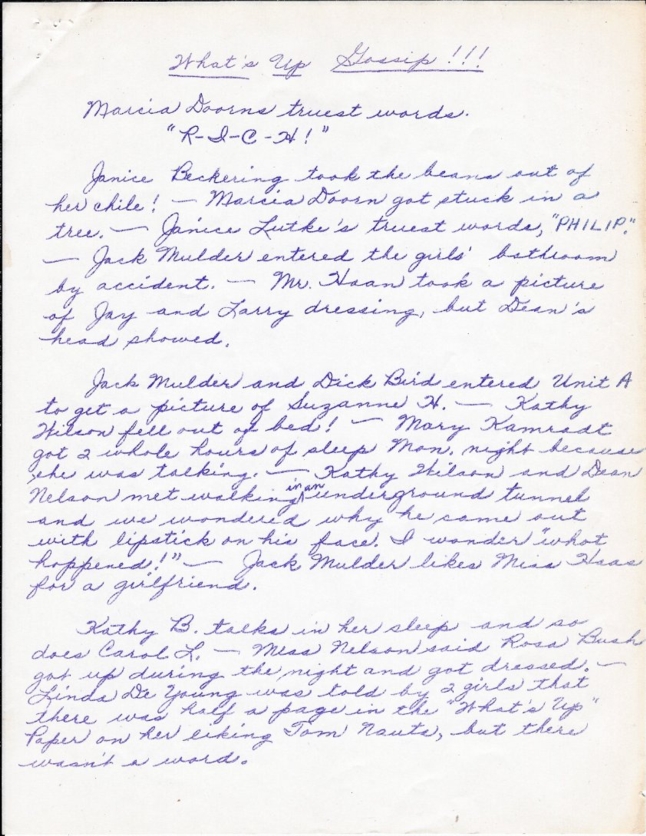 What's Up Gossip!!!
Marcia Doorns truest words.
"R-I-C-H!"
Janice Beckering took the beans out of
her chile! — Marcia Doorn got stuck in a
tree. — Janice Lutke's truest words, "PHILIP."
— Jack Mulder entered the girls' bathroom
by accident. — Mr. Haan took a picture
of Jay and Larry dressing, but Dean's
head showed.
Jack Mulder and Dick Bird entered Unit A
to get a picture of Suzanne H. — Kathy
Wilson fell out of bed! — Mary Kamradt
got 2 whole hours of sleep Mon. night because
she was talking. — Kathy Wilson and Dean
Nelson met walking in an underground tunnel
and we wondered why he came out
with lipstick on his face. I wonder "what
happened!" — Jack Mulder likes Miss Haas
for a girlfriend.
Kathy B. talks in her sleep and so
does Carol L. — Miss Nelson said Rosa Bush
got up during the night and got dressed. —
Linda De Young was told by 2 girls that
there was half a page in the "What's Up"
Paper on her liking Tom Nauta, but there
wasn't a word.